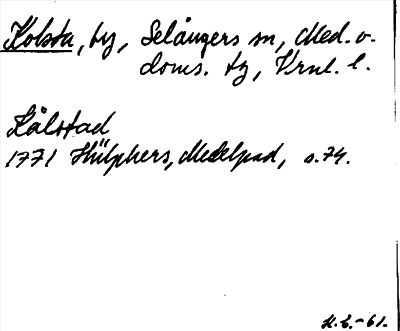 Kolsta, by, Selångers sn, Med. v.
doms. tg, Vrnl. l.
Kålstad
1771 Hülphers, Medelpad, s. 74.
H.S.-61.